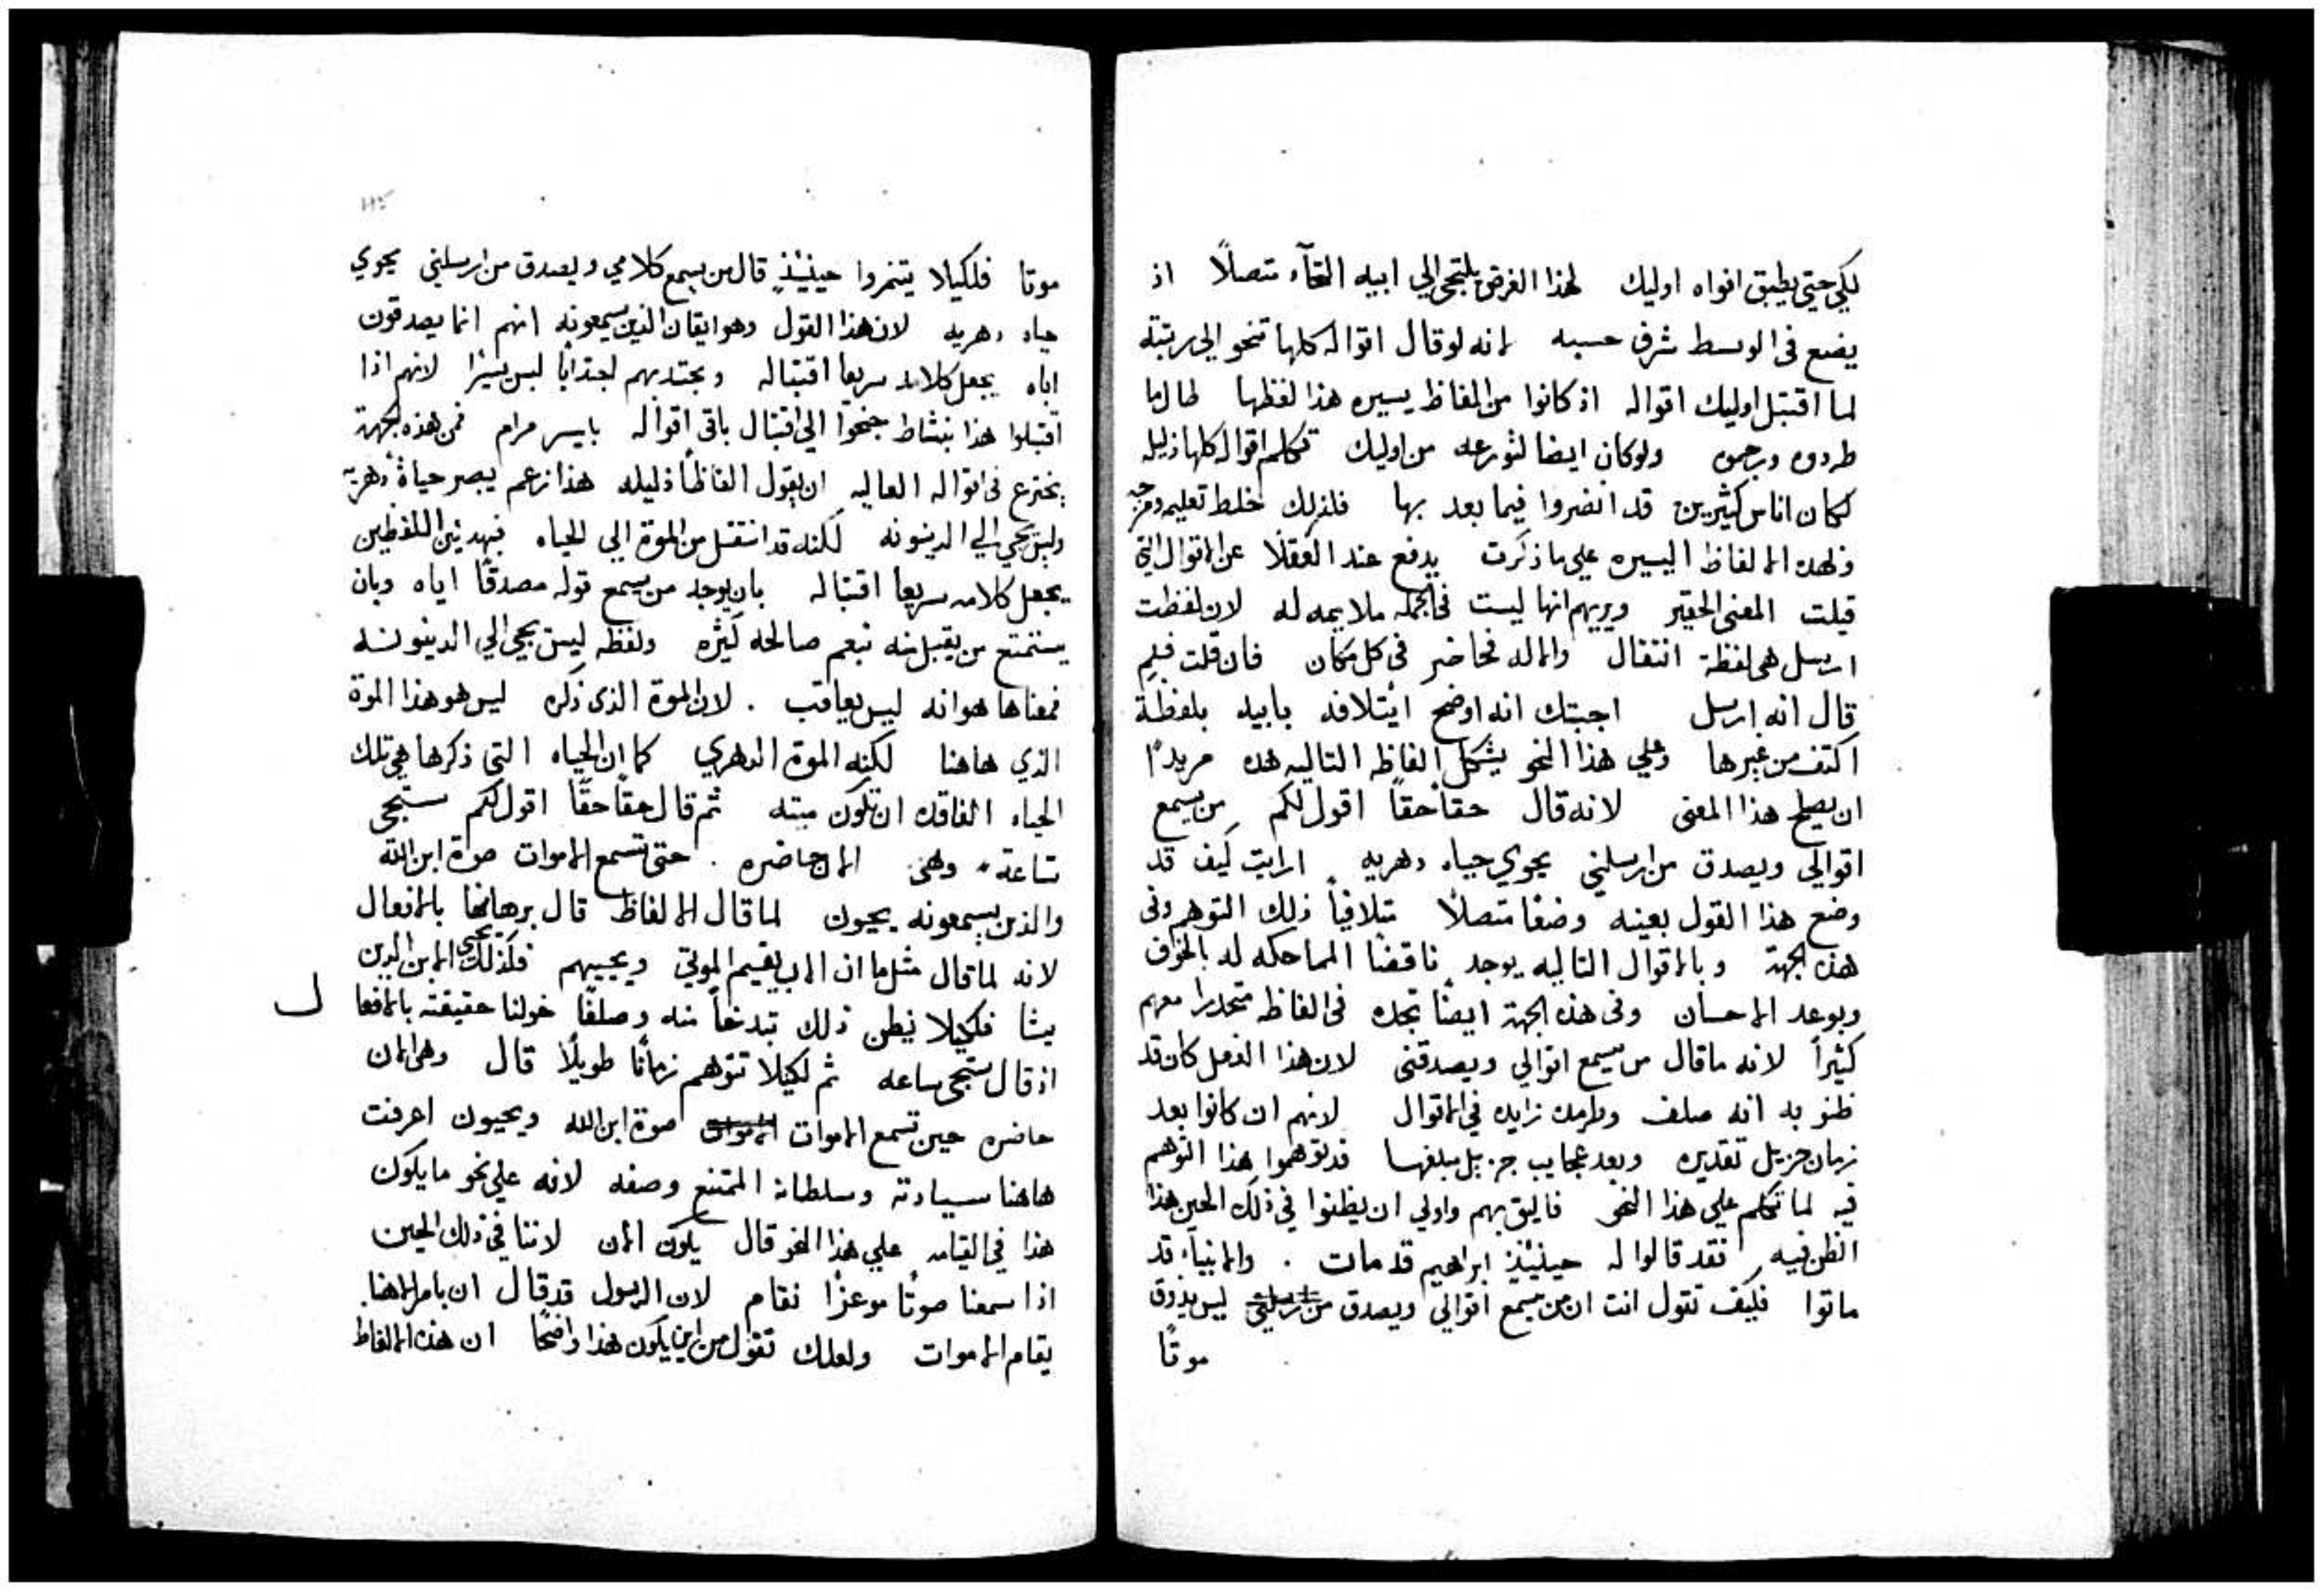 لكي حتي يطبق افواه اوليك لهذا الغرض يلتجي الي ابيه التجآء متصلاً اذ
يضع في الوسط شرف حسبه لانه لو قال اقواله كلها تنحو الي رتبته
لما اقتبل اوليك اقواله اذ كانوا من الفاظ يسيره هذا لفظها طال ما
طردوه ورجموه ولو كان ايضا لثورعه من اوليك تكلم اقواله كلها ذليله
لكان اناس كثيرين قد انضروا فيما بعد بها فلذلك خلط تعليمه ومزجه
ولهذه الالفاظ اليسيره علي ما ذكرت يدفع عند العقلا عن الاقوال التي
قيلت المعني الحقير ويريهم انها ليست في الجمله ملايمه له لان لفظت
ارسل هي لفظة انتقال والاله فحاضر في كل مكان فان قلت فلم
قال انه ارسل اجبتك انه اوضح ايتلافه بابيه بلفظة
اكتف من غيرها وعلي هذا النحو يشكل الفاظه التاليه هذه مريدًا
ان يصلح هذا المعني لانه قال حقاً حقاً اقول لكم من يسمع
اقوالي ويصدق من ارسلني يحوي حياه دهريه ارايت كيف قد
وضع هذا القول بعينه وضعًا متصلاً متلافياً ذلك التوهم وفي
هذه الجهة وبالاقوال التاليه يوجد ناقضًا المماحكه له بالخوف
وبوعد الاحسان وفي هذه الجهة ايضًا تجده في الفاظه متحدرا معهم
كثيراً لانه ما قال من يسمع اقوالي ويصدقني لان هذا الفعل كان قد
ظنو به انه صلف وطرمده زايده في الاقوال لانهم ان كانوا بعد
زمان جزيل تقديره وبعد عجايب جزيل مبلغها قد توهموا هذا التوهم
فيه لما تكلم علي هذا النحو فاليق بهم واولي ان يظنوا في ذلك الحين هذا
الظن فيه فقد قالوا له حينيئذٍ ابراهيم قد مات . والانبياء قد
ماتوا فكيف تقول انت ان من يسمع اقوالي ويصدق من ارسلني ليس يذوق
موتًا
موتا فلكيلا يتنمروا حينيئذٍ قال من يسمع كلامي ويصدق من ارسلني يحوي
حياه دهريه لان هذا القول وهو ايقان الذين يسمعونه انهم انما يصدقون
اباه يجعل كلامه سريعا اقتباله ويجتذبهم اجتذابًا ليس يسيرًا لانهم اذا
اقتبلوا هذا بنشاط جنحوا الي اقتبال باقي اقواله بايسر مرام فمن هذه الجهة
يخترع في اقواله العاليه ان يقول الفاظاً ذليله هذا زعم يبصر حياةً دهرية
وليس يجي الي الدينونه لكنه قد انتقل من الموة الي الحياه فبهذين اللفظين
يجعل كلامه سريعا اقتباله بان يوجد من يسمع قوله مصدقًا اياه وبان
يستمتع من يقبل منه نعم صالحه كثيره ولفظه ليس يجي الي الدينونه
فمعناها هو انه ليس يعاقب . لان الموة الذي ذكره ليس هو هذا الموة
الذي هاهنا لكنه الموة الدهري كما ان الحياه التي ذكرها هي تلك
الحياه الفاقده ان تكون ميته ثم قال حقاً حقاً اقول لكم ستجي
ساعة وهي الان حاضره . حتي تسمع الاموات صوة ابن الله
والذين يسمعونه يحيون لما قال الالفاظ قال برهانها بالافعال
لانه لما قال مثل ما ان الاب يقيم الموتي ويحييهم فكذلك يحيي الابن الذين
يشا فلكيلا يظن ذلك تبذخاً منه وصلفًا خولنا حقيقته بالافعا
ل
اذ قال ستجي ساعه ثم لكيلا تتوهم زمانًا طويلًا قال وهي الان
حاضره حين تسمع الاموات صوة ابن الله ويحيون اعرفت
هاهنا سيادته وسلطانه الممتنع وصفه لانه علي نحو ما يكون
هذا في القيامه علي هذا النحو قال يكون الان لاننا في ذلك الحين
اذا سمعنا صوتًا موعزًا نقام لان الرسول قد قال ان بامر الاهنا
يقام الاموات ولعلك تقول من اين يكون هذا واضحًا ان هذه الالفاظ